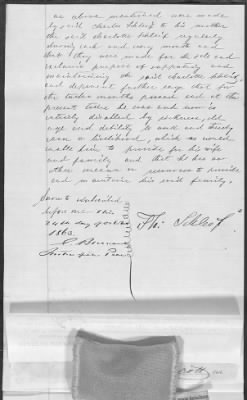 as above mentioned were made
by said Charles Schleif to his mother
the said Charlotte Schleif regularly
during each and every month and
that they were made for the sole and
exclusive purpose of supporting and
maintaining the said Charlotte Schleif
and deponent further says that for
the twelve months previous and at the
present time he was and now is
entirely disabled by sickness, old
age and debility to work and thereby
earn a livelihood, which would
enable him to provide for his wife
and family and that he has no
other means or resources to provide
and maintain his said family.
Sworn to & subscribed
before me this
24th day of
1863
Ph: Schleif
Justice of the Peace